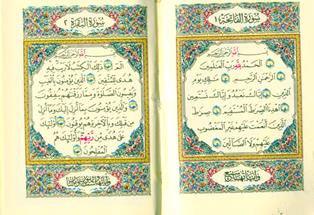 سُورَةُ الْفَاتِحَةِ ١
بِسْمِ اللَّهِ الرَّحْمَٰنِ الرَّحِيمِ
الْحَمْدُ لِلَّهِ رَبِّ الْعَالَمِينَ
الرَّحْمَٰنِ الرَّحِيمِ مَالِكِ يَوْمِ
الدِّينِ إِيَّاكَ نَعْبُدُ وَإِيَّاكَ نَسْتَعِينُ
اهْدِنَا الصِّرَاطَ الْمُسْتَقِيمَ صِرَاطَ
الَّذِينَ أَنْعَمْتَ عَلَيْهِمْ غَيْرِ الْمَغْضُوبِ
عَلَيْهِمْ وَلَا الضَّالِّينَ
سُورَةُ الْبَقَرَةِ ٢
بِسْمِ اللَّهِ الرَّحْمَٰنِ الرَّحِيمِ
الم ذَٰلِكَ الْكِتَابُ لَا رَيْبَ فِيهِ
هُدًى لِلْمُتَّقِينَ الَّذِينَ يُؤْمِنُونَ بِالْغَيْبِ
وَيُقِيمُونَ الصَّلَاةَ وَمِمَّا رَزَقْنَاهُمْ يُنْفِقُونَ
وَالَّذِينَ يُؤْمِنُونَ بِمَا أُنْزِلَ إِلَيْكَ وَمَا أُنْزِلَ
مِنْ قَبْلِكَ وَبِالْآخِرَةِ هُمْ يُوقِنُونَ أُولَٰئِكَ
عَلَىٰ هُدًى مِنْ رَبِّهِمْ وَأُولَٰئِكَ هُمُ
الْمُفْلِحُونَ